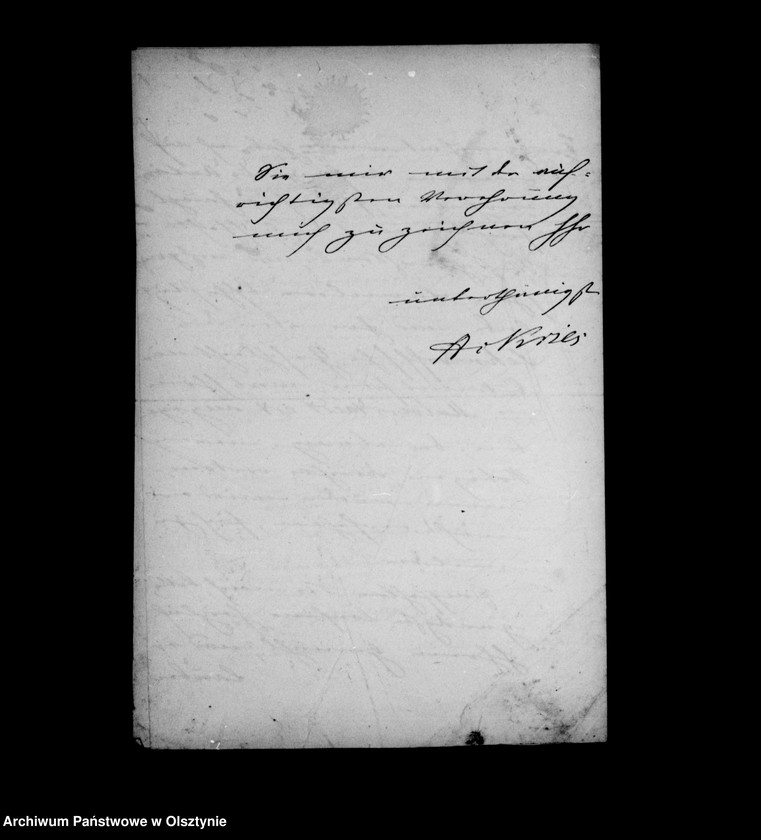 Sie mir mit der auf-
richtigsten Verehrung
mich zu zeichnen Ihr
unterthänigst
Kries
Archiwum Państwowe w Olsztynie